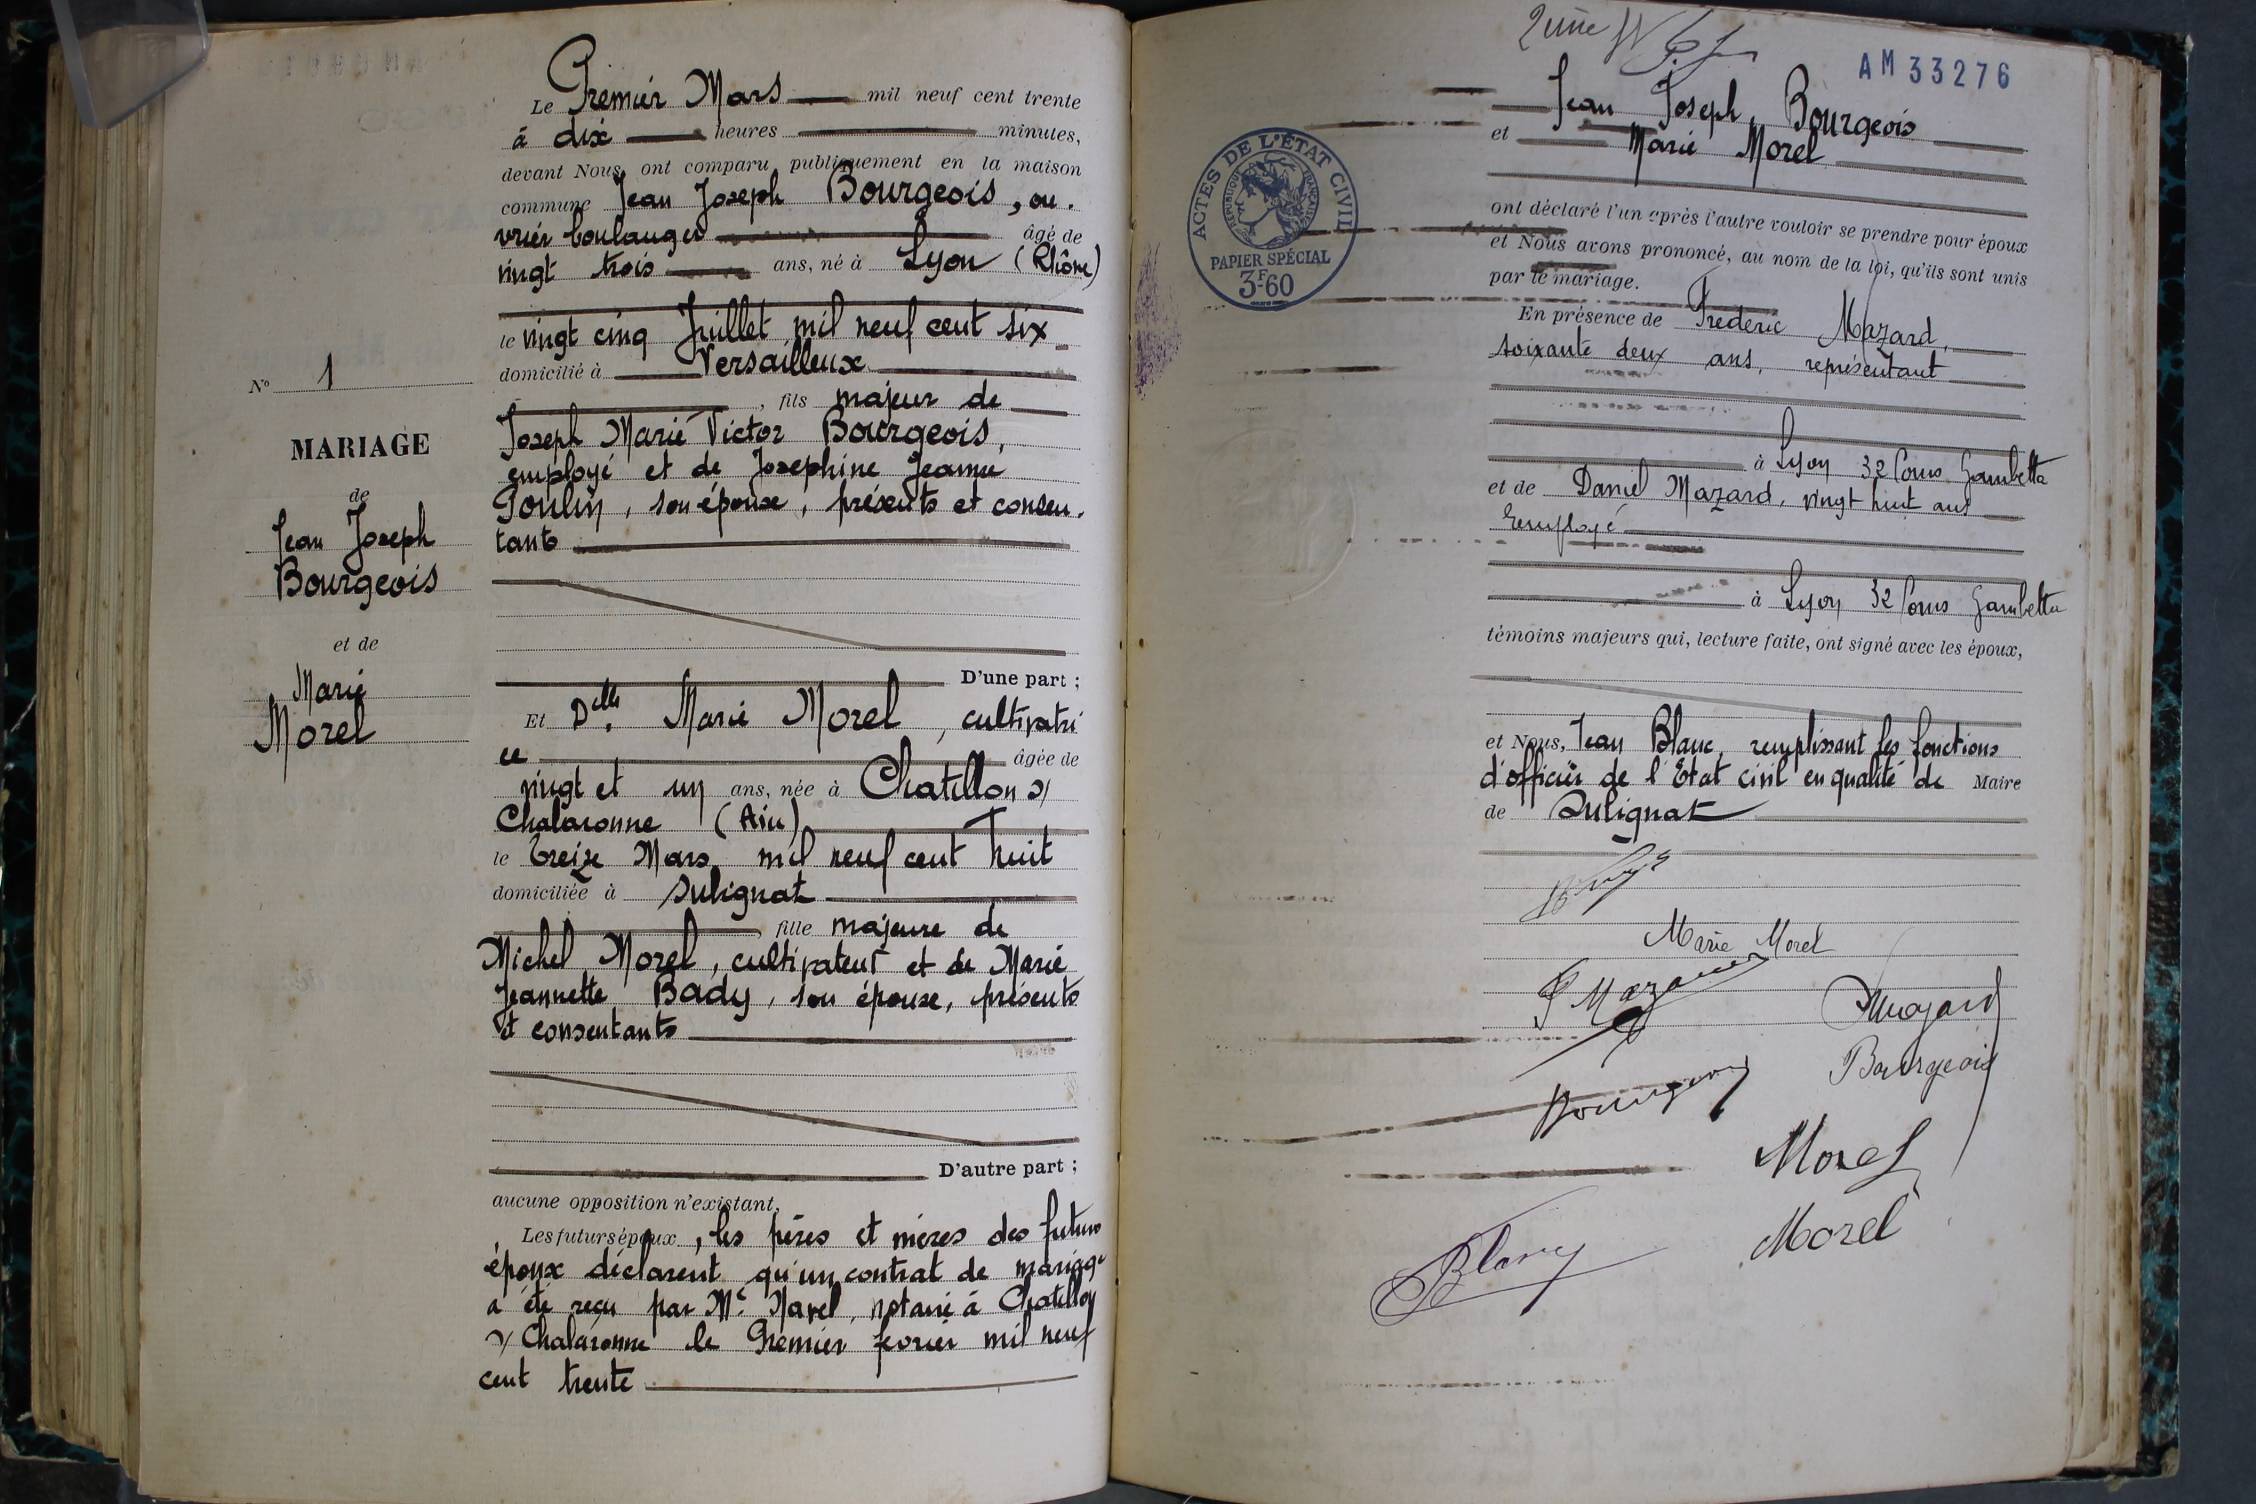 Le Premier Mars mil neuf cent trente
à dix heures minutes,
devant Nous, ont comparu publiquement en la maison
commune Jean Joseph Bourgeois, ou.
vrier boulanger âgé de
vingt trois ans, né à Lyon (Rhône)
le vingt cinq Juillet mil neuf cent six
domicilié à Versailleux
, fils majeur de
Joseph Marie Victor Bourgeois,
employé et de Josephine Jeanne
Poulin, son épouse, présents et consen.
tants
N° 1
MARIAGE
de
Jean Joseph
Bourgeois
et de
Marie
Morel
D'une part ;
Et Dlle. Marie Morel, cultivatri
ce âgée de
vingt et un ans, née à Chatillon s/
Chalaronne (Ain)
le treize Mars mil neuf cent huit
domiciliée à Sulignat
fille majeure de
Michel Morel, cultivateur et de Marie
Jeannette Bady, son épouse, présents
et consentants
D'autre part ;
aucune opposition n'existant,
Les futurs époux, les pères et mères des futurs
époux déclarent qu'un contrat de mariage
a été reçu par Me Navel, notaire à Chatillon
s/ Chalaronne le Premier février mil neuf
cent trente
2ème
AM 33276
Jean Joseph Bourgeois
et Marie Morel
ACTES DE L'ÉTAT CIVIL
RÉPUBLIQUE FRANÇAISE
PAPIER SPÉCIAL
3F60
ont déclaré l'un après l'autre vouloir se prendre pour époux
et Nous avons prononcé, au nom de la loi, qu'ils sont unis
par le mariage.
En présence de Frederic Mazard,
soixante deux ans, représentant
à Lyon 32 Cours Gambetta
et de Daniel Mazard, vingt huit ans
Employé
à Lyon 32 Cours Gambetta
témoins majeurs qui, lecture faite, ont signé avec les époux,
et Nous, Jean Blanc, remplissant les fonctions
d'officier de l'Etat civil en qualité de Maire
de Sulignat
Marie Morel
F Mazard
Mazard
Bourgeois
Bourgeois
Morel
Morel
Blanc